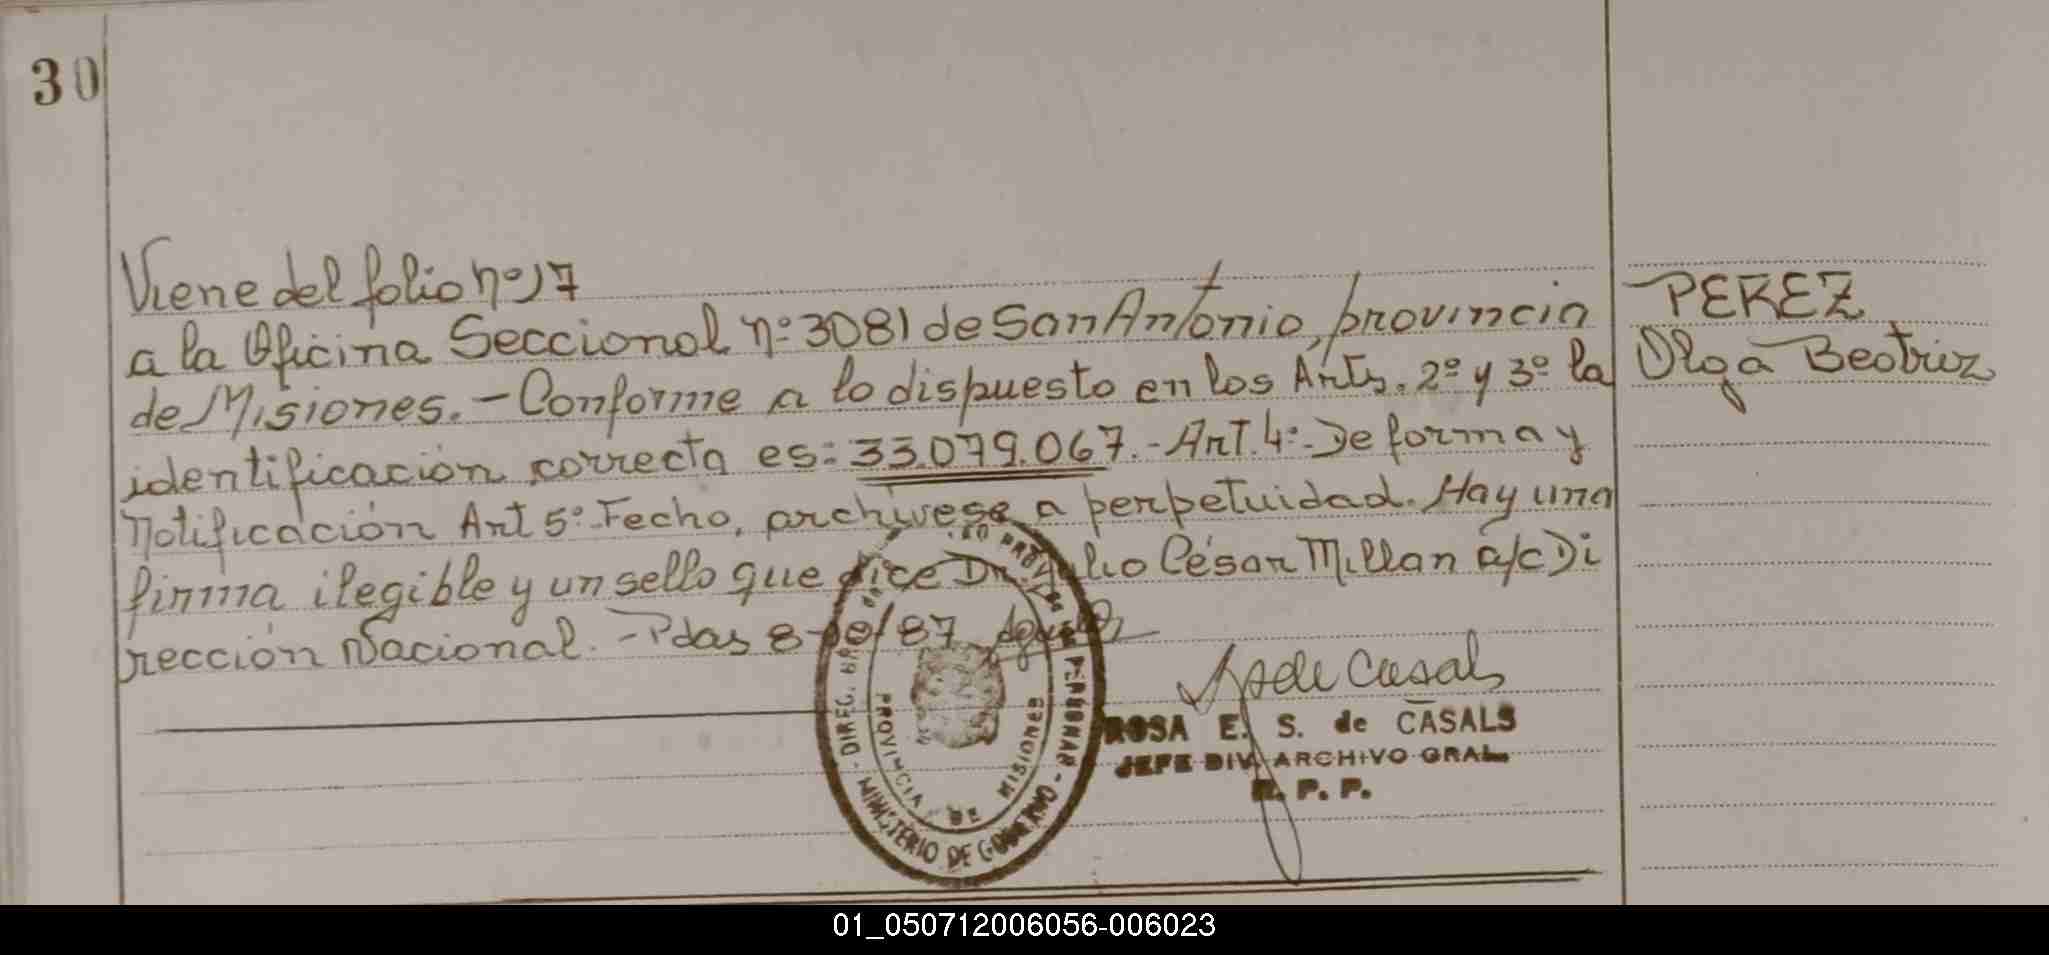 30
Viene del folio nº 17
a la Oficina Seccional nº 3081 de San Antonio, provincia
de Misiones. - Conforme a lo dispuesto en los Arts. 2º y 3º la
identificación correcta es: 33.079.067. - Art. 4º - De forma y
notificación Art 5º - Fecho, archivese a perpetuidad. Hay una
firma ilegible y un sello que dice Dr. Julio César Millan a/c Di
rección Nacional. - Pdas 8-        /87
PEREZ
Olga Beatriz
ROSA E. S. de CASALS
JEFE DIV. ARCHIVO GRAL.
R. P. P.
DIREC.
PERSONAS - MINISTERIO DE GOBIERNO
PROVINCIA DE MISIONES
01_050712006056-006023